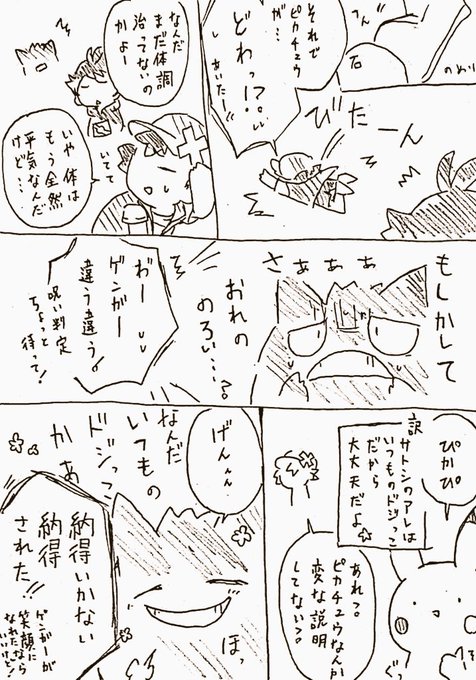 それで
ピカチュウ
が…
どわっ!?
あいたー!!
てん
石
のめり
びたーん
なんだ
まだ体調
治ってないの
かよー
いてて
いや体は
もう全然
平気なんだ
けど…
もしかして
さぁぁぁ
おれの
のろい…?
わー
ゲンガー
違う違う。
呪い判定
ちょっと
待って!
ぴかぴ。
訳
サトシのアレは
いつものドジっこ
だから
大丈夫だよ
あれっ。
ピカチュウなんか
変な説明
してない?。
ぐっ
げんんん
なんだ
いつもの
ドジっこ
かぁ
ほっ
納得いかない
納得
された!!
ゲンガーが
笑顔に
なれたなら
いいけど!